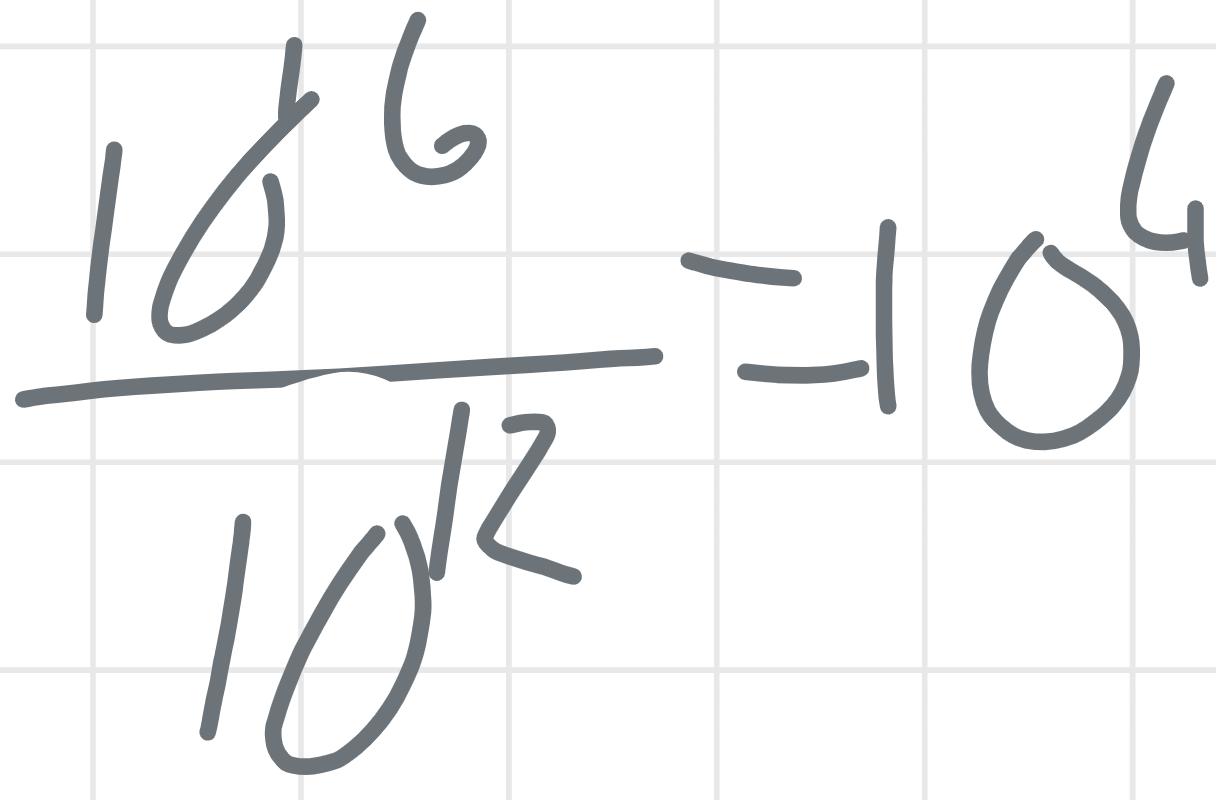 10¹⁶
10¹²
=10⁴